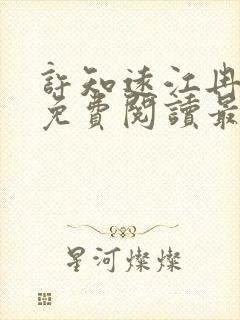 許知遠江冉
免費閱讀最
星河燦燦